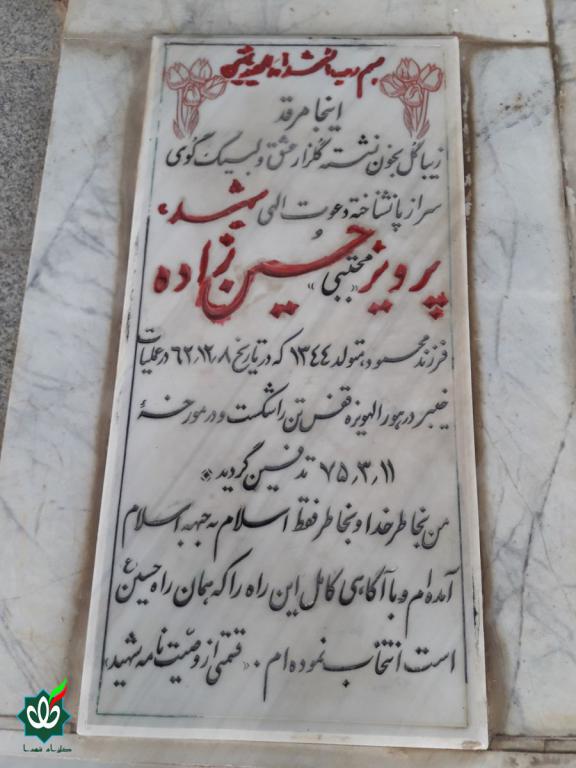 بسم رب الشهداء و الصدیقین
اینجا مرقد
زیبا گل بخون نشسته گلزار عشق و لبیک گوی
سر از پا نشناخته دعوت الهی شهید،
پرویز «مجتبی» حسین زاده
فرزند محمود، متولد ۱۳۴۴ که در تاریخ ۶۲٫۱۲٫۸ در عملیات
خیبر در هور الهویزه قفس تن را شکست و در مورخهٔ
۷۵٫۳٫۱۱ تدفین گردید
من بخاطر خدا و بخاطر فقط اسلام به جبهه اسلام
آمده ام و با آگاهی کامل این راه را که همان راه حسین ع
است انتخاب نموده ام. «قسمتی از وصیت نامه شهید»
گلزار شهدا